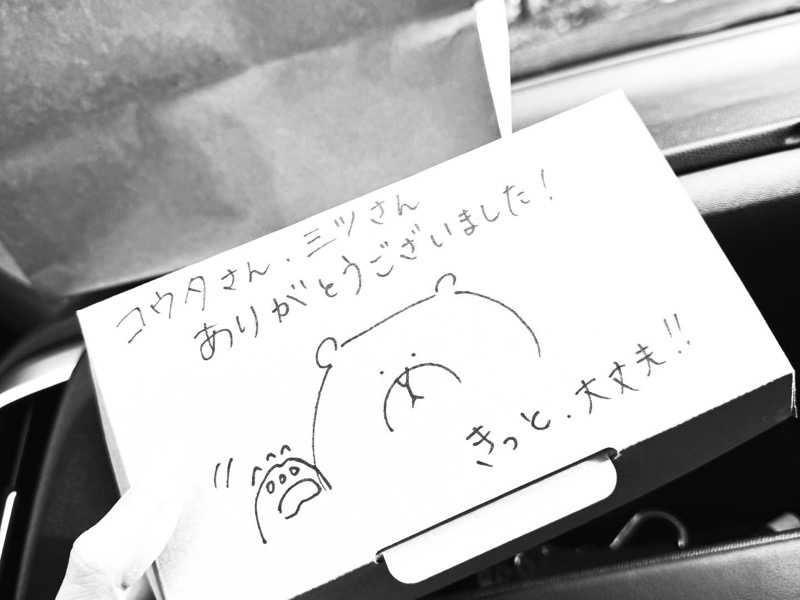 コウタさん.三ツさん
ありがとうございました!
きっと.大丈夫!!